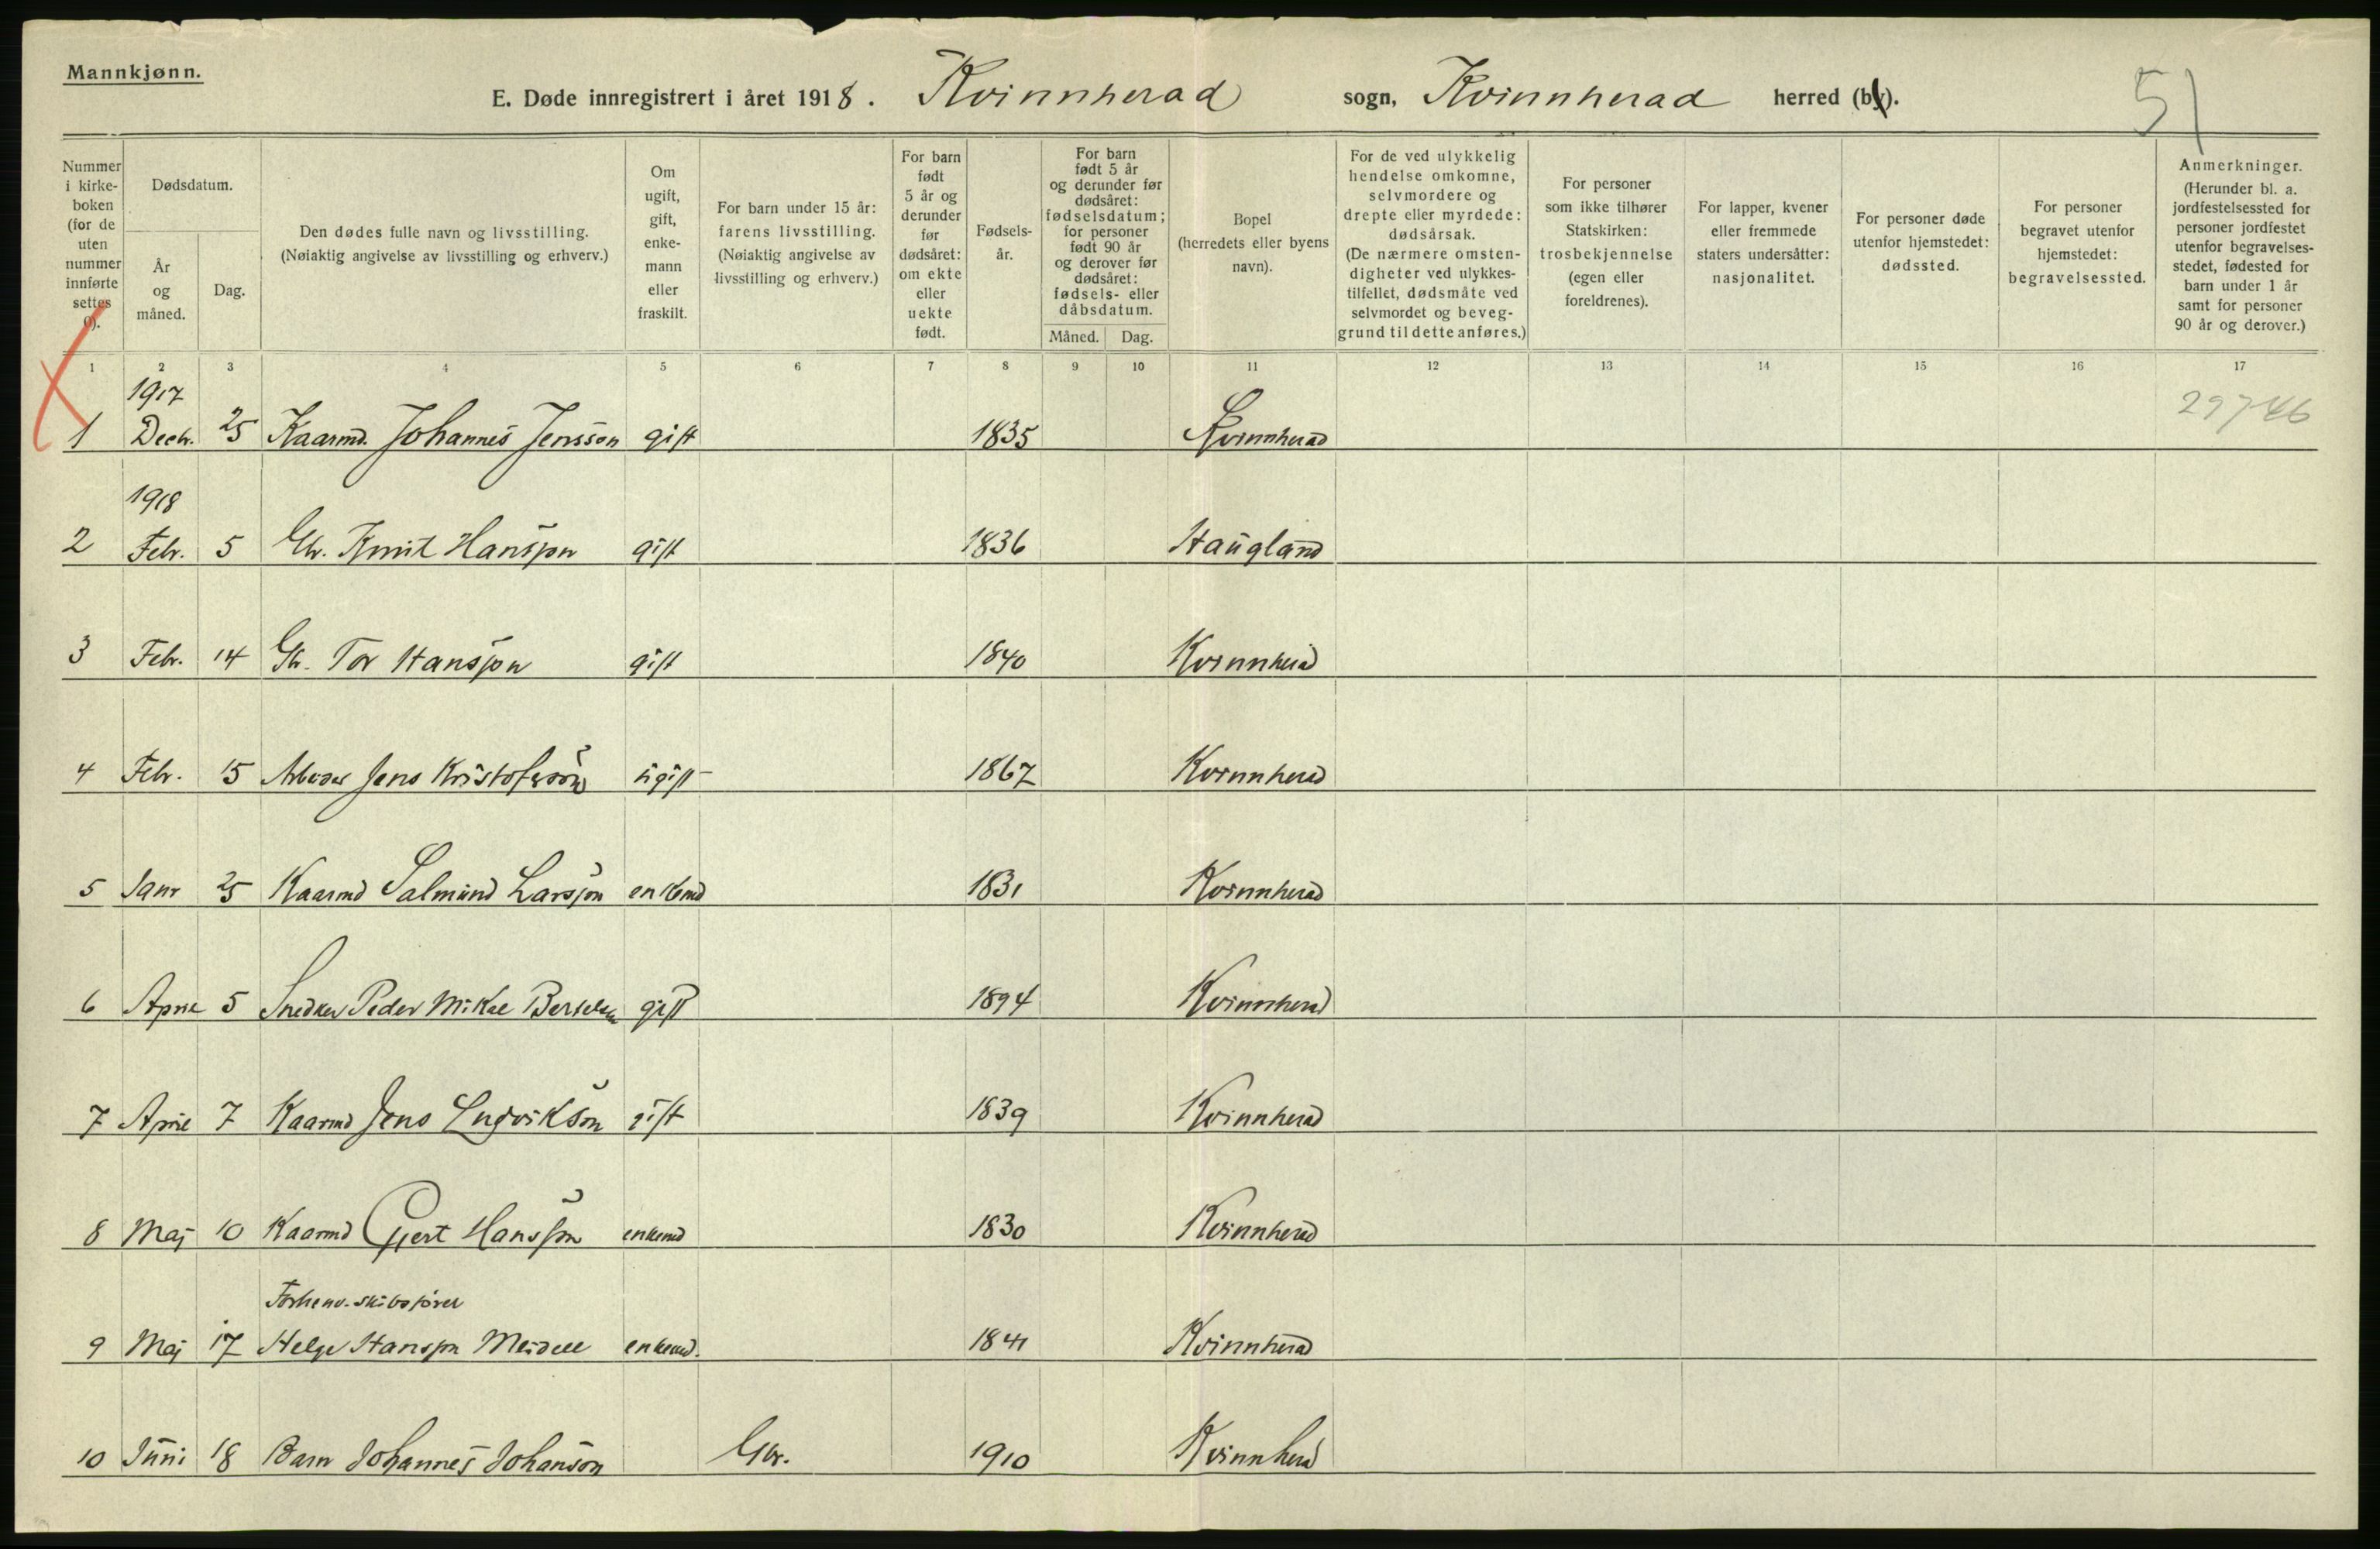 Mannkjønn.
E. Døde innregistrert i året 1918. Kvinnherad sogn, Kvinnherad herred (by).
51
Nummer i kirke-boken (for de uten nummer innførte settes 0).
Dødsdatum.
År og måned.
Dag.
Den dødes fulle navn og livsstilling. (Nøiaktig angivelse av livsstilling og erhverv.)
Om ugift, gift, enke-mann eller fraskilt.
For barn under 15 år: farens livsstilling. (Nøiaktig angivelse av livsstilling og erhverv.)
For barn født 5 år og derunder før dødsåret: om ekte eller uekte født.
Fødsels-år.
For barn født 5 år og derunder før dødsåret: fødselsdatum; for personer født 90 år og derover før dødsåret: fødsels- eller dåbsdatum.
Måned. Dag.
Bopel (herredets eller byens navn).
For de ved ulykkelig hendelse omkomne, selvmordere og drepte eller myrdede: dødsårsak. (De nærmere omsten-digheter ved ulykkes-tilfellet, dødsmåte ved selvmordet og beveg-grund til dette anføres.)
For personer som ikke tilhører Statskirken: trosbekjennelse (egen eller foreldrenes).
For lapper, kvener eller fremmede staters undersåtter: nasjonalitet.
For personer døde utenfor hjemstedet: dødssted.
For personer begravet utenfor hjemstedet: begravelsessted.
Anmerkninger. (Herunder bl. a. jordfestelsessted for personer jordfestet utenfor begravelses-stedet, fødested for barn under 1 år samt for personer 90 år og derover.)
1 2 3 4 5 6 7 8 9 10 11 12 13 14 15 16 17
1917
1 Decbr. 25 Kaarmd. Johannes Jensson gift 1835 Kvinnherad 29746
1918
2 Febr. 5 Gbr. Knut Hansson gift 1836 Haugland
3 Febr. 14 Gbr. Tor Hansson gift 1840 Kvinnherad
4 Febr. 15 Arbeider Jens Kristofersson ugift 1867 Kvinnherad
5 Janr 25 Kaarmd Salmund Larsson enkemd 1831 Kvinnherad
6 April 5 Snedker Peder Mikal Bertelsen gift 1894 Kvinnherad
7 April 7 Kaarmd Jens Ludvikson gift 1839 Kvinnherad
8 Maj 10 Kaarmd Gjert Hansson enkemd 1830 Kvinnherad
Forhenv. skibsfører
9 Maj 17 Helge Hansson Meidell enkemd. 1841 Kvinnherad
10 Juni 18 Barn Johannes Johanson Gbr. 1910 Kvinnherad